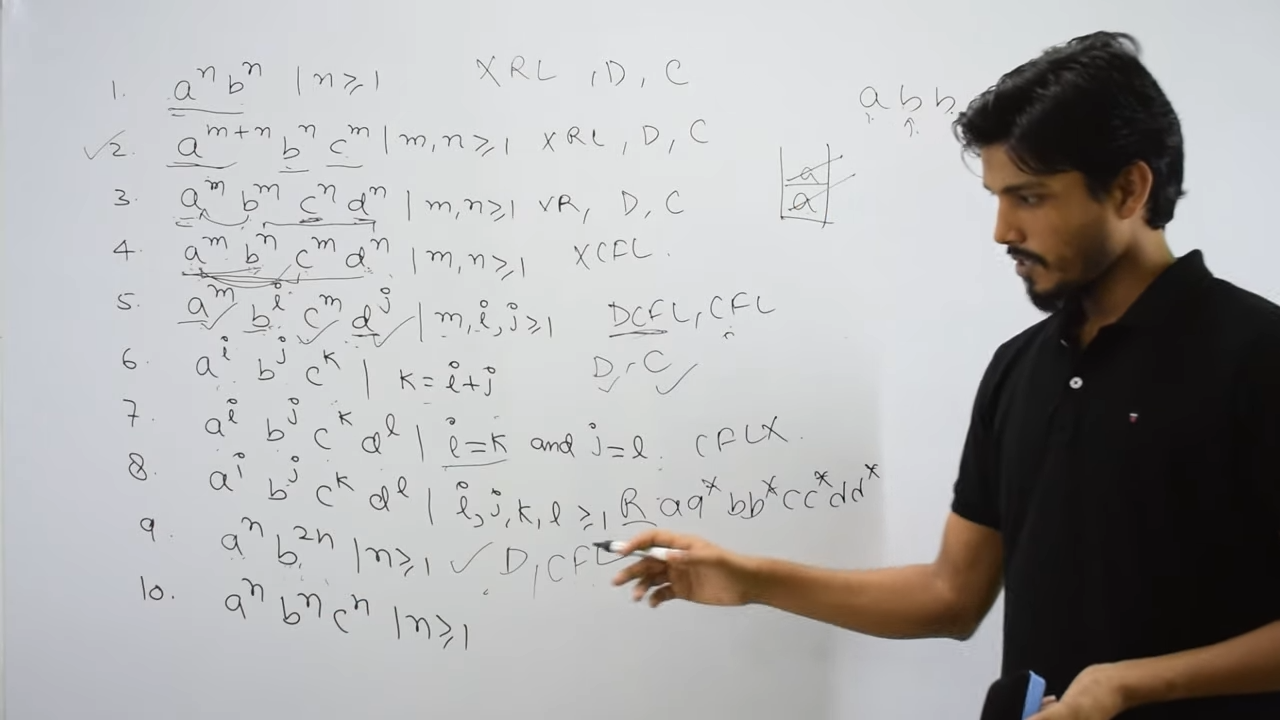 1. aⁿ bⁿ | n ≥ 1 X RL , D , C
✓2. aᵐ⁺ⁿ bⁿ cᵐ | m, n ≥ 1 X RL , D , C
3. aᵐ bᵐ cⁿ dⁿ | m, n ≥ 1 XR, D, C
4. aᵐ bⁿ cᵐ dⁿ | m, n ≥ 1 X CFL .
5. aᵐ bⁱ cᵐ dʲ | m, i, j ≥ 1 DCFL, CFL
6. aⁱ bʲ cᵏ | k = i+j D, C ✓
7. aⁱ bʲ cᵏ dˡ | i=k and j=l. CFL X.
8. aⁱ bʲ cᵏ dˡ | i, j, k, l ≥ 1 R aa* bb* cc* dd*
9. aⁿ b²ⁿ | n ≥ 1 ✓ D, CFL
10. aⁿ bⁿ cⁿ | n ≥ 1
a b b
a
a